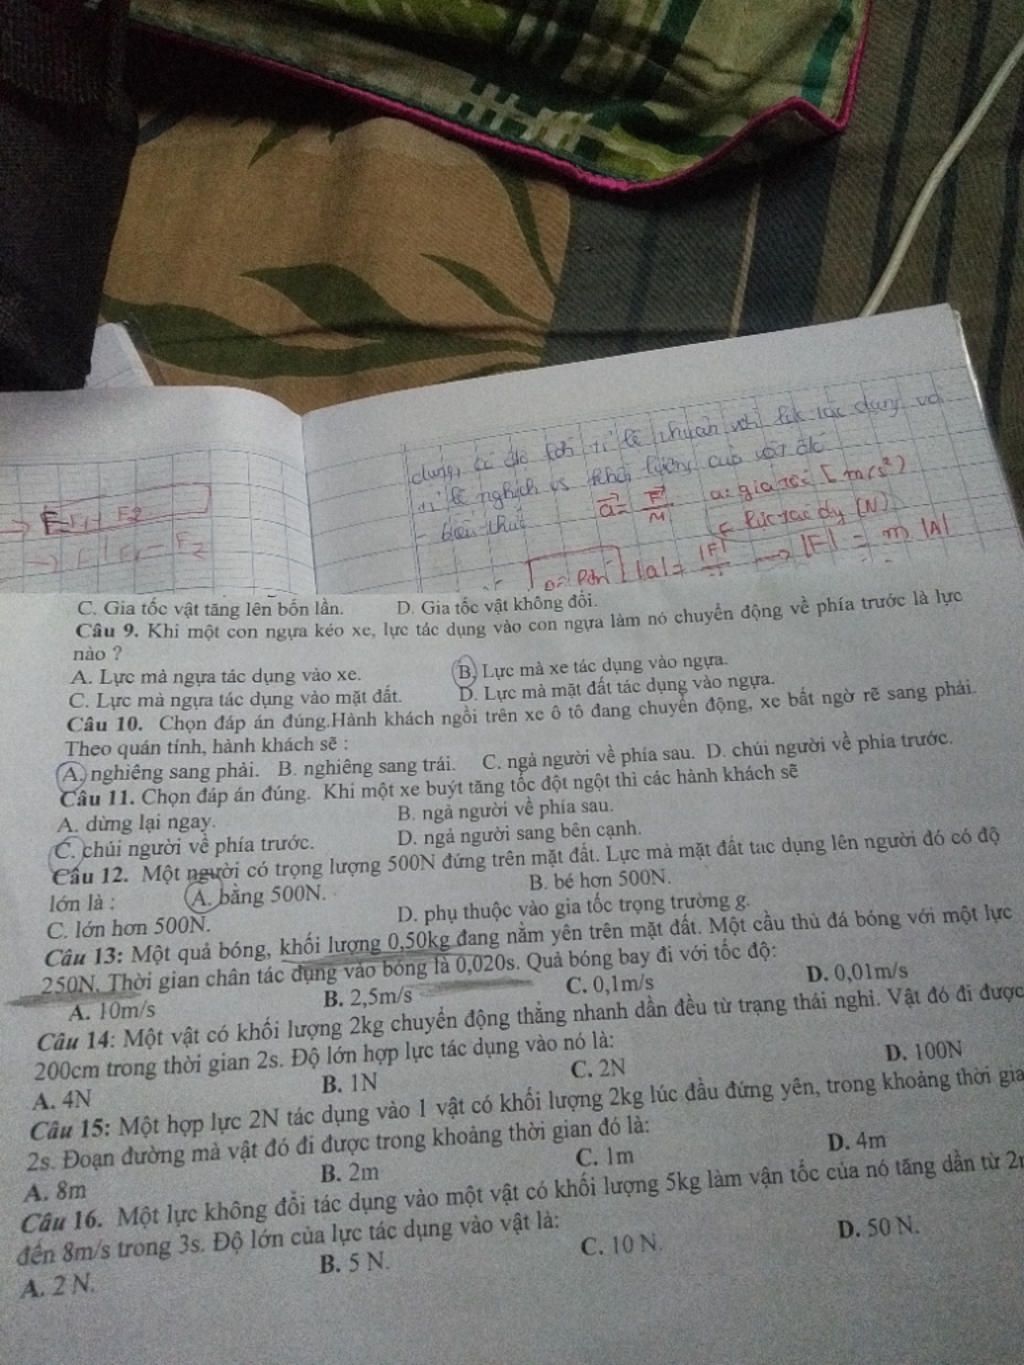 dụng, có độ lớn tỉ lệ thuận với lực tác dụng và
tỉ lệ nghịch vs khối lượng của vật đó
- biểu thức a = F/M a: gia tốc [m/s²)
F lực tác dụ (N)
|a| = |F| → |F| = m |A|
→ F = F1 - F2
C. Gia tốc vật tăng lên bốn lần. D. Gia tốc vật không đổi.
Câu 9. Khi một con ngựa kéo xe, lực tác dụng vào con ngựa làm nó chuyển động về phía trước là lực
nào ?
A. Lực mà ngựa tác dụng vào xe. B. Lực mà xe tác dụng vào ngựa.
C. Lực mà ngựa tác dụng vào mặt đất. D. Lực mà mặt đất tác dụng vào ngựa.
Câu 10. Chọn đáp án đúng.Hành khách ngồi trên xe ô tô đang chuyển động, xe bất ngờ rẽ sang phải.
Theo quán tính, hành khách sẽ :
A. nghiêng sang phải. B. nghiêng sang trái. C. ngả người về phía sau. D. chúi người về phía trước.
Câu 11. Chọn đáp án đúng. Khi một xe buýt tăng tốc đột ngột thì các hành khách sẽ
A. dừng lại ngay. B. ngả người về phía sau.
C. chúi người về phía trước. D. ngả người sang bên cạnh.
Câu 12. Một người có trọng lượng 500N đứng trên mặt đất. Lực mà mặt đất tac dụng lên người đó có độ
lớn là : A. bằng 500N. B. bé hơn 500N.
C. lớn hơn 500N. D. phụ thuộc vào gia tốc trọng trường g.
Câu 13: Một quả bóng, khối lượng 0,50kg đang nằm yên trên mặt đất. Một cầu thủ đá bóng với một lực
250N. Thời gian chân tác dụng vào bóng là 0,020s. Quả bóng bay đi với tốc độ:
A. 10m/s B. 2,5m/s C. 0,1m/s D. 0,01m/s
Câu 14: Một vật có khối lượng 2kg chuyển động thẳng nhanh dần đều từ trạng thái nghỉ. Vật đó đi được
200cm trong thời gian 2s. Độ lớn hợp lực tác dụng vào nó là:
A. 4N B. 1N C. 2N D. 100N
Câu 15: Một hợp lực 2N tác dụng vào 1 vật có khối lượng 2kg lúc đầu đứng yên, trong khoảng thời gia
2s. Đoạn đường mà vật đó đi được trong khoảng thời gian đó là:
A. 8m B. 2m C. 1m D. 4m
Câu 16. Một lực không đổi tác dụng vào một vật có khối lượng 5kg làm vận tốc của nó tăng dần từ 2
đến 8m/s trong 3s. Độ lớn của lực tác dụng vào vật là:
A. 2 N. B. 5 N. C. 10 N. D. 50 N.